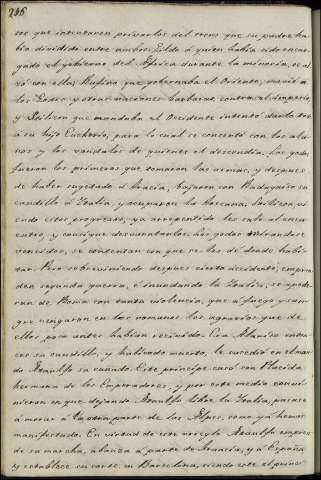 206
ros que intentaron privarlos del reino que su padre ha-
bia dividido entre ambos. Gildo á quien habia sido encar-
gado el gobierno del Africa durante la minoria, se al-
zó con ella; Rufino, que gobernaba el Oriente, movió á
los Godos y otras naciones barbaras contra el imperio,
y Stilicon que mandaba el Occidente intentó darlo
á su hijo Eucherio, para lo cual se concertó con los ala-
nos y los vandalos de quienes el descendia. Los godos
fueron los primeros que tomaron las armas, y despues
de haber sugetado á bajaron con Radagaiso su
caudillo á Italia, y ocuparon la toscana. Stilicon vi-
endo estos progresos, ya arrepentido les sale al encu-
entro, y consigue desbaratarlos. Los godos mirandose
vencidos, se contentan con que se les dé donde habi-
tar. Pero sobreviniendo despues cierto accidente, empren-
den segunda guerra, é inundando la Italia, se apode-
ran de Roma con tanta violencia, que á fuego y san-
gre vengaron en los romanos los agravios que de
ellos poco antes habian recibido. Era Alarico enton-
ces su caudillo, y habiendo muerto, le sucedió en el man-
do Ataulfo su cuñado. Este principe casó con Placida
hermana de los Emperadores, y por este medio convi-
nieron en que dejando Ataulfo libre la Italia, pasase
á morar á la otra parte de los Alpes, como ya hemos
manifestado. En virtud de este arreglo Ataulfo empren-
de su marcha, á la otra parte de Francia, y á España
y establece su corte en Barcelona, siendo este el prime-